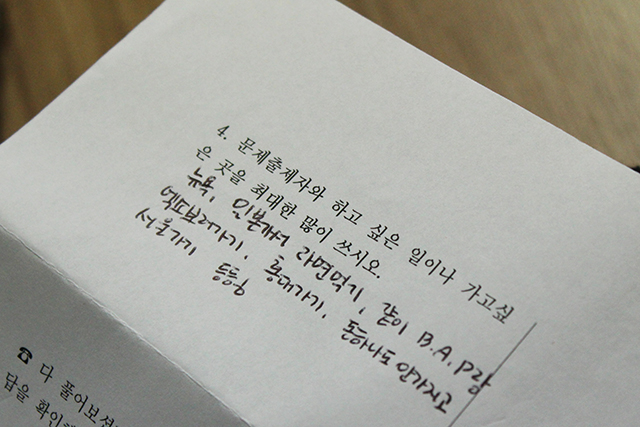 4. 문제출제자와 하고 싶은 일이나 가고싶
은 곳을 최대한 많이 쓰시오.
뉴욕, 일본가서 라면먹기, 같이 B.A.P랑
엑소보러가기, 홍대가기, 돈하나도 안가지고
서울가기 등등
☎ 다 풀어보셨
답을 확인